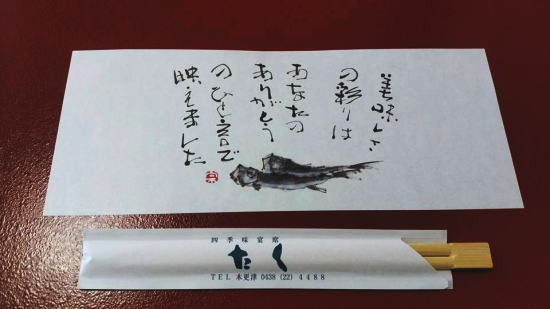 美味しさ
の彩りは
あなたの
ありがとう
のひと言で
映えました
四季味宴席
たく
TEL 木更津 0438 (22) 4488